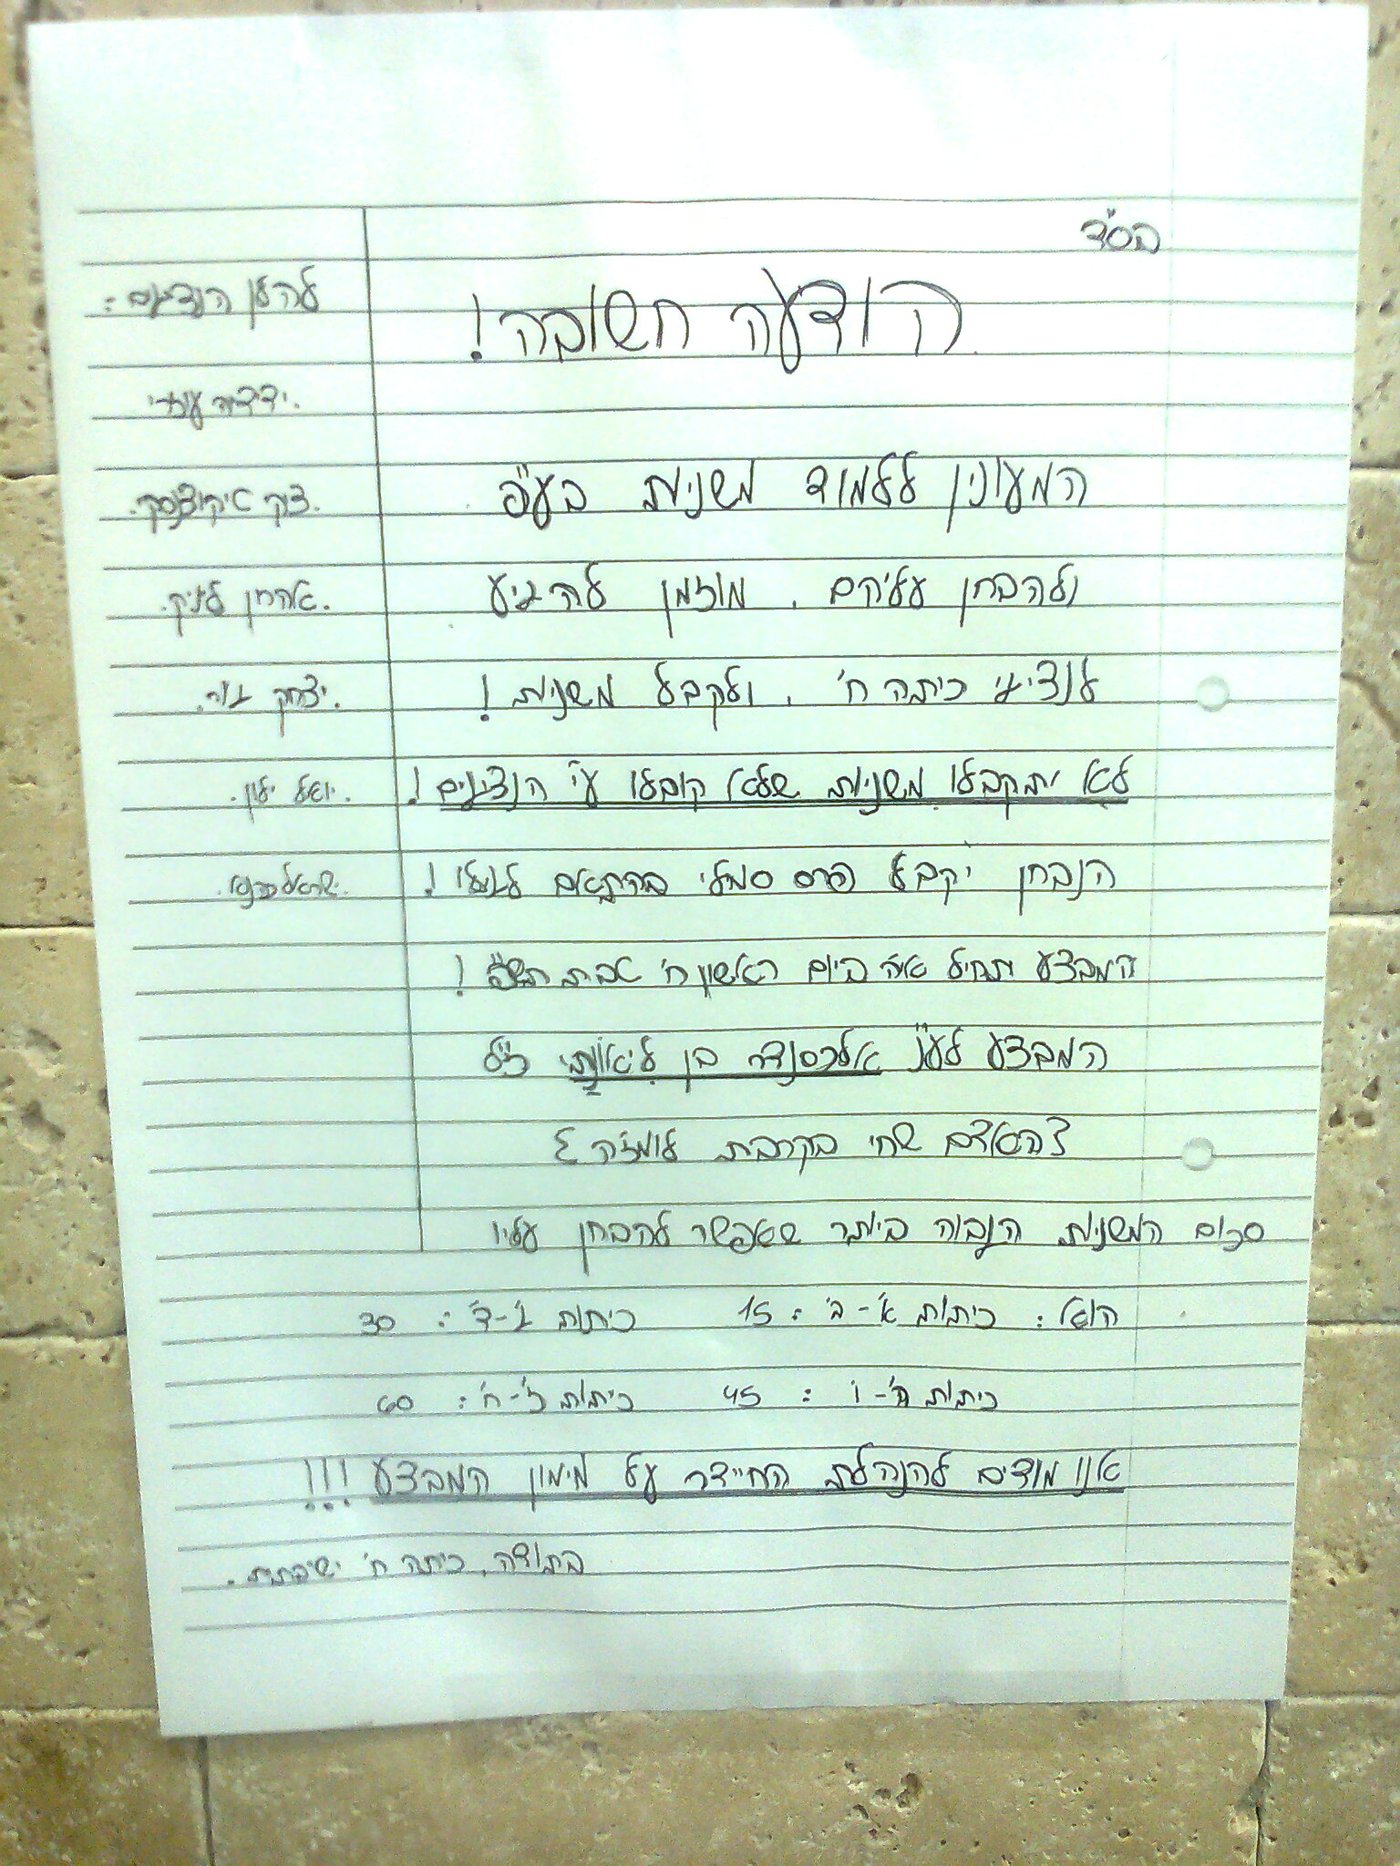 בס"ד
הודעה חשובה!
המעונין ללמוד משניות בע"פ
ולהבחן עליהם, מוזמן להגיע
לנציגי כיתה ח', ולקבל משניות!
לא יתקבלו משניות שלא קובלו ע"י הנציגים!
הנבחן יקבל פרס סמלי בהתאם לגילו!
המבצע יתחיל אי"ה ביום ראשון ח' טבת תש"פ!
המבצע לע"נ אלכסנדר בן ליאונתי ז"ל
האדם שחי בקרבת לומזה
סכום המשניות הגבוה ביותר שאפשר להבחן עליו
הוא: כיתות א'-ב': 15 כיתות ג'-ד': 30
כיתות ה'-ו': 45 כיתות ז'-ח': 60
אנו מודים להנהלת החיידר על מימון המבצע!!!
בתודה, כיתה ח' ישיבתית.
להלן הנציגים:
ידידיה עוזרי
.אהרן
.יצחק גור.
.יואל ילון.
.ישראל